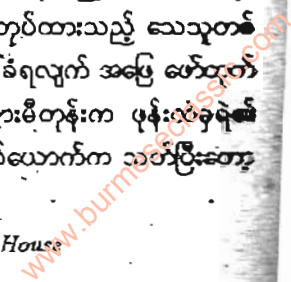 တုပ်ထားသည့် သေသူတစ်
ခံရလျက် အဖြေ ဖော်ထုတ်
မီတုန်းက ဖုန်းလာခဲ့ရဲ့၏
ယောက်က သတ်ပြီးတော့
House
www.burmeseclassic.com